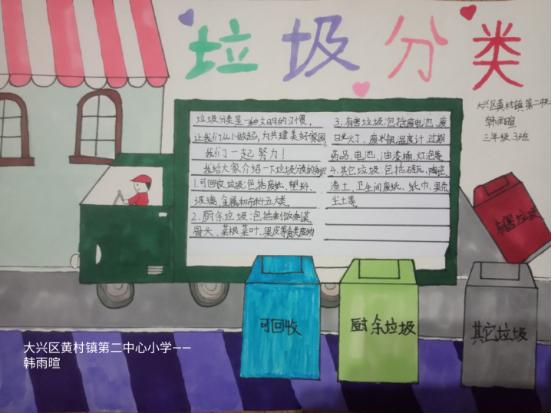 垃圾分类
大兴区黄村镇第二中
韩雨暄
三年级3班
垃圾分类是一种文明的习惯,
让我们从小做起,为共建美好家园
我们一起努力!
我给大家介绍一下垃圾分类的知识
1.可回收垃圾:包括废纸、塑料、
玻璃、金属和布料五大类。
2.厨余垃圾:包括剩饭剩菜、
骨头、菜根菜叶、果皮等食品废物
3.有害垃圾:包括废电池、废
日光灯、废水银温度计、过期
药品、电池、油漆桶、灯泡等
4.其它垃圾:包括砖瓦、陶瓷、
渣土、卫生间废纸、纸巾、果壳
尘土等。
有害垃圾
可回收
厨余垃圾
其它垃圾
大兴区黄村镇第二中心小学——
韩雨暄